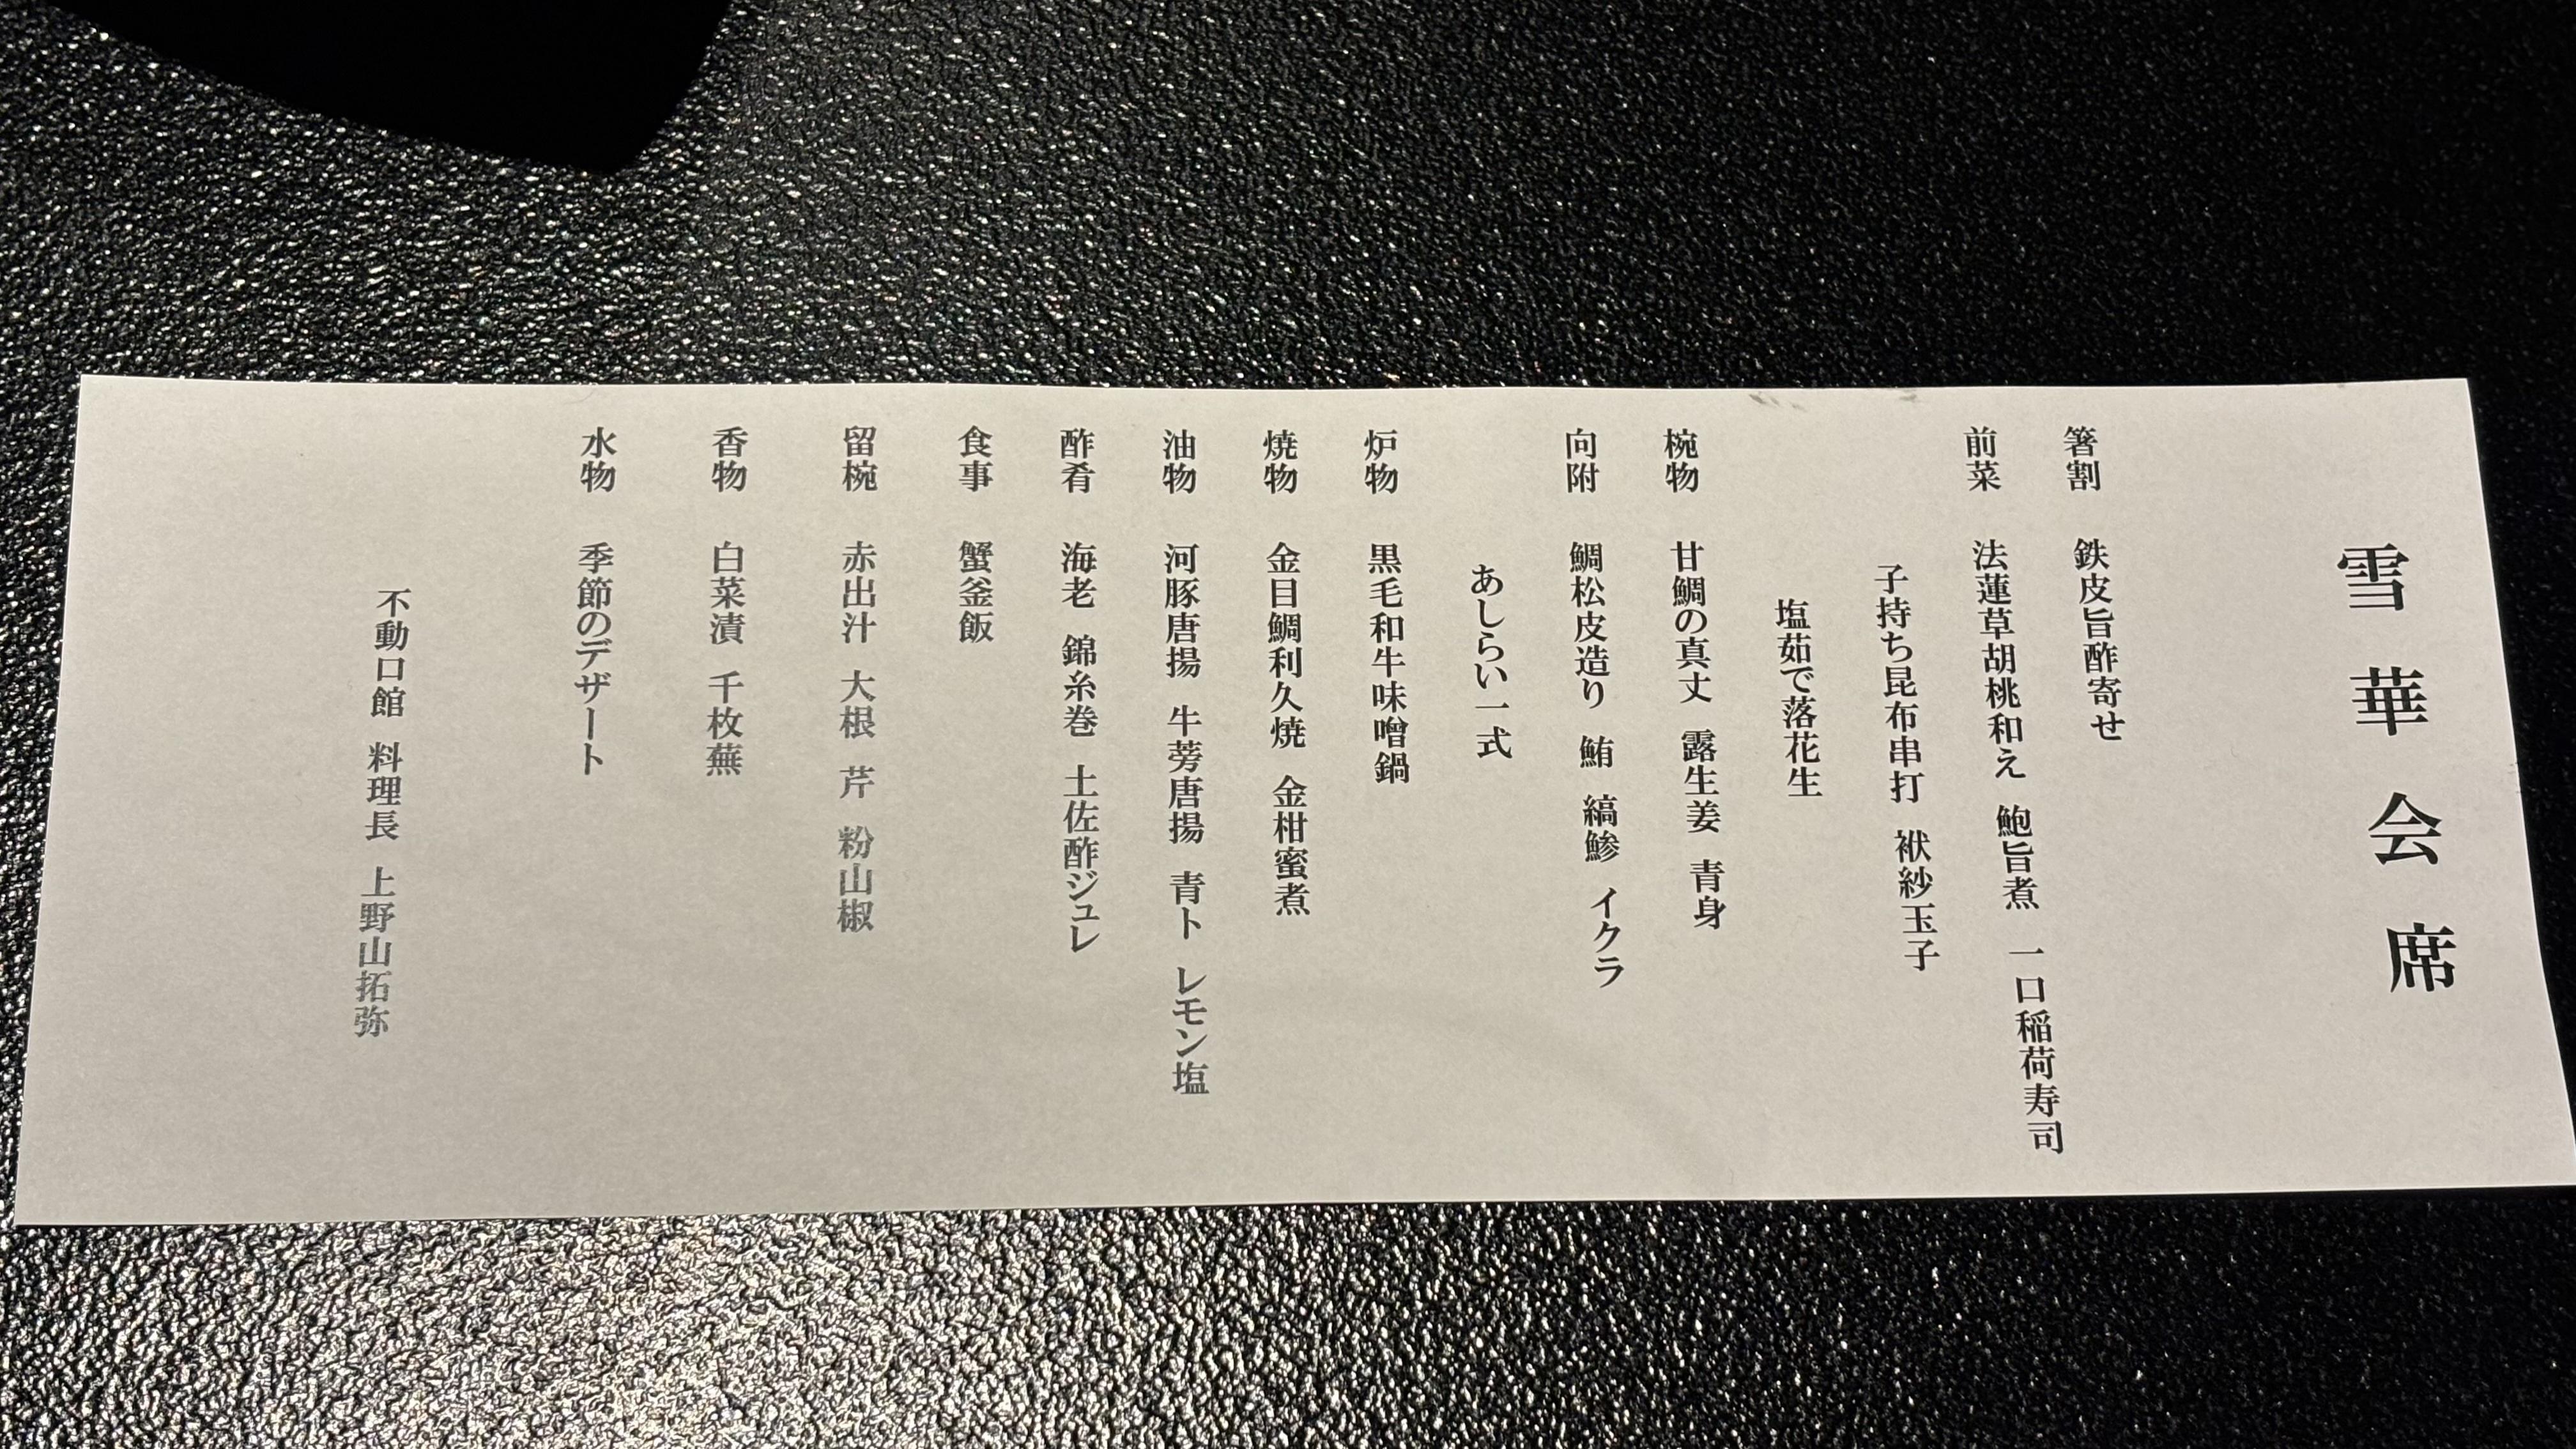 雪華会席
箸割 鉄皮旨酢寄せ
前菜 法蓮草胡桃和え 鮑旨煮 一口稲荷寿司
子持ち昆布串打 袱紗玉子
塩茹で落花生
椀物 甘鯛の真丈 露生姜 青身
向附 鯛松皮造り 鮪 縞鯵 イクラ
あしらい一式
炉物 黒毛和牛味噌鍋
焼物 金目鯛利久焼 金柑蜜煮
油物 河豚唐揚 牛蒡唐揚 青ト レモン塩
酢肴 海老 錦糸巻 土佐酢ジュレ
食事 蟹釜飯
留椀 赤出汁 大根 芹 粉山椒
香物 白菜漬 千枚蕪
水物 季節のデザート
不動口館 料理長 上野山拓弥